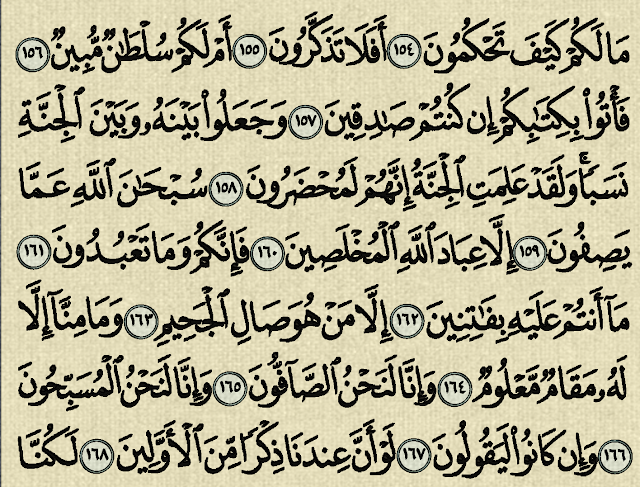 مَا لَكُمْ كَيْفَ تَحْكُمُونَ ١٥٤ أَفَلَا تَذَكَّرُونَ ١٥٥ أَمْ لَكُمْ سُلْطَانٌ مُّبِينٌ ١٥٦
فَأْتُوا بِكِتَابِكُمْ إِن كُنتُمْ صَادِقِينَ ١٥٧ وَجَعَلُوا بَيْنَهُ وَبَيْنَ الْجِنَّةِ
نَسَبًا ۚ وَلَقَدْ عَلِمَتِ الْجِنَّةُ إِنَّهُمْ لَمُحْضَرُونَ ١٥٨ سُبْحَانَ اللَّهِ عَمَّا
يَصِفُونَ ١٥٩ إِلَّا عِبَادَ اللَّهِ الْمُخْلَصِينَ ١٦٠ فَإِنَّكُمْ وَمَا تَعْبُدُونَ ١٦١
مَا أَنتُمْ عَلَيْهِ بِفَاتِنِينَ ١٦٢ إِلَّا مَنْ هُوَ صَالِ الْجَحِيمِ ١٦٣ وَمَا مِنَّا إِلَّا
لَهُ مَقَامٌ مَّعْلُومٌ ١٦٤ وَإِنَّا لَنَحْنُ الصَّافُّونَ ١٦٥ وَإِنَّا لَنَحْنُ الْمُسَبِّحُونَ
١٦٦ وَإِن كَانُوا لَيَقُولُونَ ١٦٧ لَوْ أَنَّ عِندَنَا ذِكْرًا مِّنَ الْأَوَّلِينَ ١٦٨ لَكُنَّا